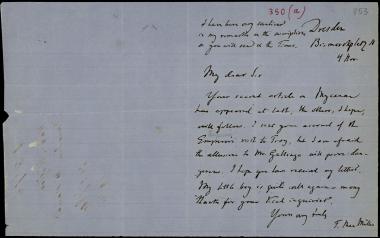 350 (a) 853
I have been very cautious
in my remarks on the inscriptions
as you will see in the Times.
Dresden
Bismarckplatz
4 Nov.
My dear Sir
Your second article on Mycenae
has appeared at last, the others, I hope,
will follow. I saw your account of the
Emperor's visit to Troy, but I am afraid
the allusion to Mr Gallenga will prove dan-
gerous. I hope you have received my letter.
My little boy is quite well again - many
thanks for your kind inquiries.
Yours very truly
F. Max Müller